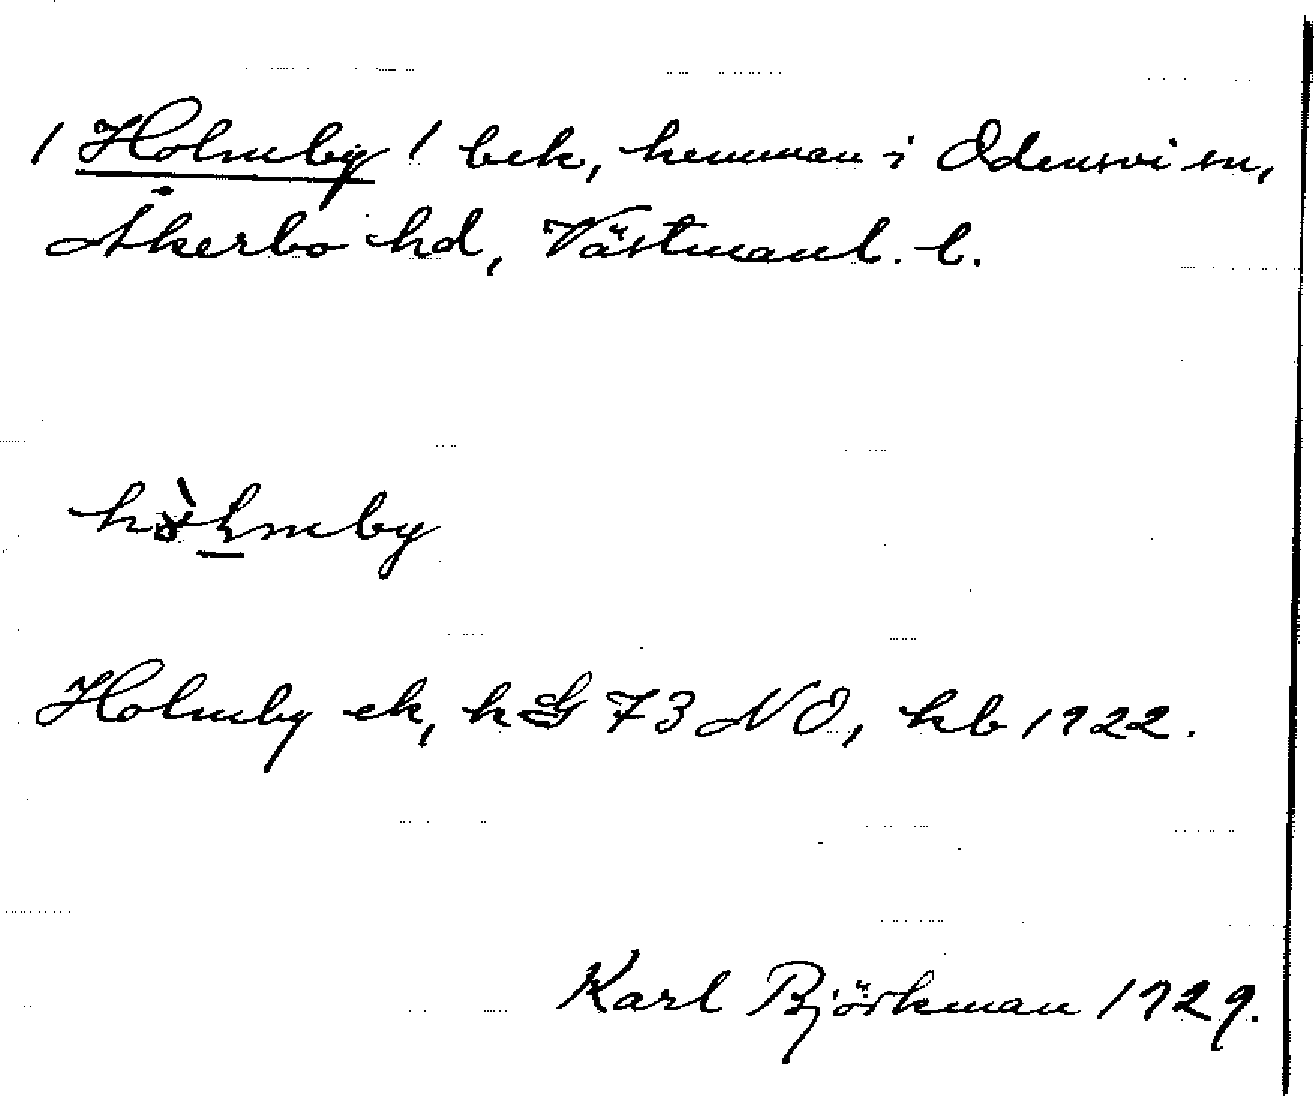 / Holmby / bek, hemman i Odensvi sn,
Åkerbo hd, Västmanl. l.
hò̀lmby
Holmby ek, h SG 73 NO, hb 1922.
Karl Björkman 1929.